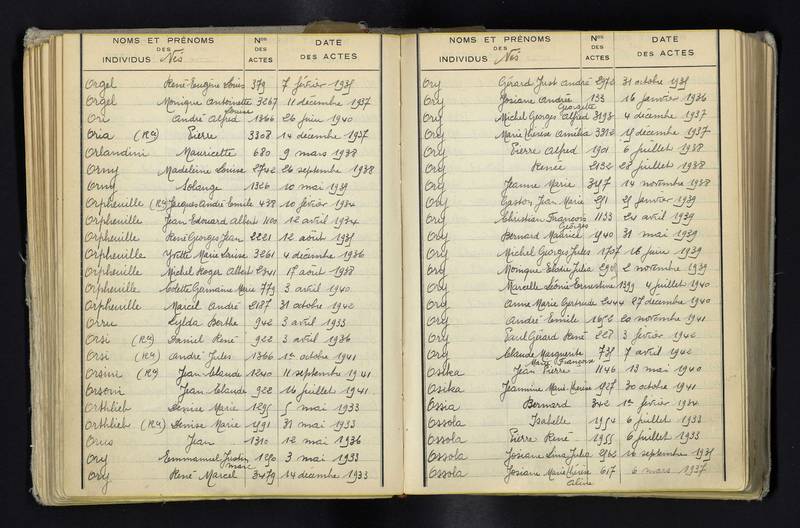 NOMS ET PRÉNOMS
DES
INDIVIDUS Nés
Nos
DES
ACTES
DATE
DES ACTES
Orgel René Eugène Louis 379 7 février 1935
Orgel Monique Antoinette Louise 3267 11 décembre 1937
Ori André Alfred 1366 26 juin 1940
Oria (Rn) Pierre 3308 14 décembre 1937
Orlandini Mauricette 680 9 mars 1938
Orny Madeleine Louise 2742 26 septembre 1938
Orny Solange 1326 10 mai 1939
Orpheuille (Rn) Jacques André Emile 438 10 février 1934
Orpheuille Jean Edouard Albert 1100 12 avril 1934
Orpheuille René Georges Jean 2221 12 août 1935
Orpheuille Yvette Marie Louise 3261 4 décembre 1936
Orpheuille Michel Roger Albert 2341 17 août 1938
Orpheuille Odette Germaine Marie 779 3 avril 1940
Orpheuille Marcel André 2187 31 octobre 1942
Orru Lylda Berthe 942 3 avril 1933
Orsi (Rn) Daniel René 922 3 avril 1936
Orsi (Rn) André Jules 1366 1er octobre 1941
Orsini (Rn) Jean Claude 1240 11 septembre 1941
Orsoni Jean Claude 922 16 juillet 1941
Orthlieb Denise Marie 1295 5 mai 1933
Orthlieb (Rn) Denise Marie 1491 31 mai 1933
Orus Jean 1310 12 mai 1936
Ory Emmanuel Justin Marc 1270 3 mai 1933
Ory René Marcel 3479 14 décembre 1933
NOMS ET PRÉNOMS
DES
INDIVIDUS Nés
Nos
DES
ACTES
DATE
DES ACTES
Ory Gérard Just André 2972 31 octobre 1935
Ory Josiane Andrée Georgette 133 16 janvier 1936
Ory Michel Georges Alfred 3193 4 décembre 1937
Ory Marie Thérèse Amélia 3312 15 décembre 1937
Ory Pierre Alfred 1901 6 juillet 1938
Ory Renée 2132 28 juillet 1938
Ory Jeanne Marie 3217 14 novembre 1938
Ory Gaston Jean Marie 211 21 janvier 1939
Ory Sébastien François Georges 1133 24 avril 1939
Ory Bernard Maurice 1940 31 mai 1939
Ory Michel Georges Jules 1707 16 juin 1939
Ory Monique Elodie Julia 2 novembre 1939
Ory Marcelle Léonie Ernestine 1399 4 juillet 1940
Ory Anne Marie Gertrude 2444 27 décembre 1940
Ory André Emile 1652 20 novembre 1941
Ory Paul Gérard René 227 3 février 1942
Ory Claude Marguerite 735 7 avril 1942
Osika Jean Pierre Marie François 1146 13 mai 1940
Osika Jeannine Marie Thérèse 1527 30 octobre 1941
Ossia Bernard 342 1er février 1934
Ossola Isabelle 1954 6 juillet 1933
Ossola Pierre René 1955 6 juillet 1933
Ossola Josiane Lina Julia 2562 16 septembre 1935
Ossola Josiane Marie Thérèse Aline 617 6 mars 1937